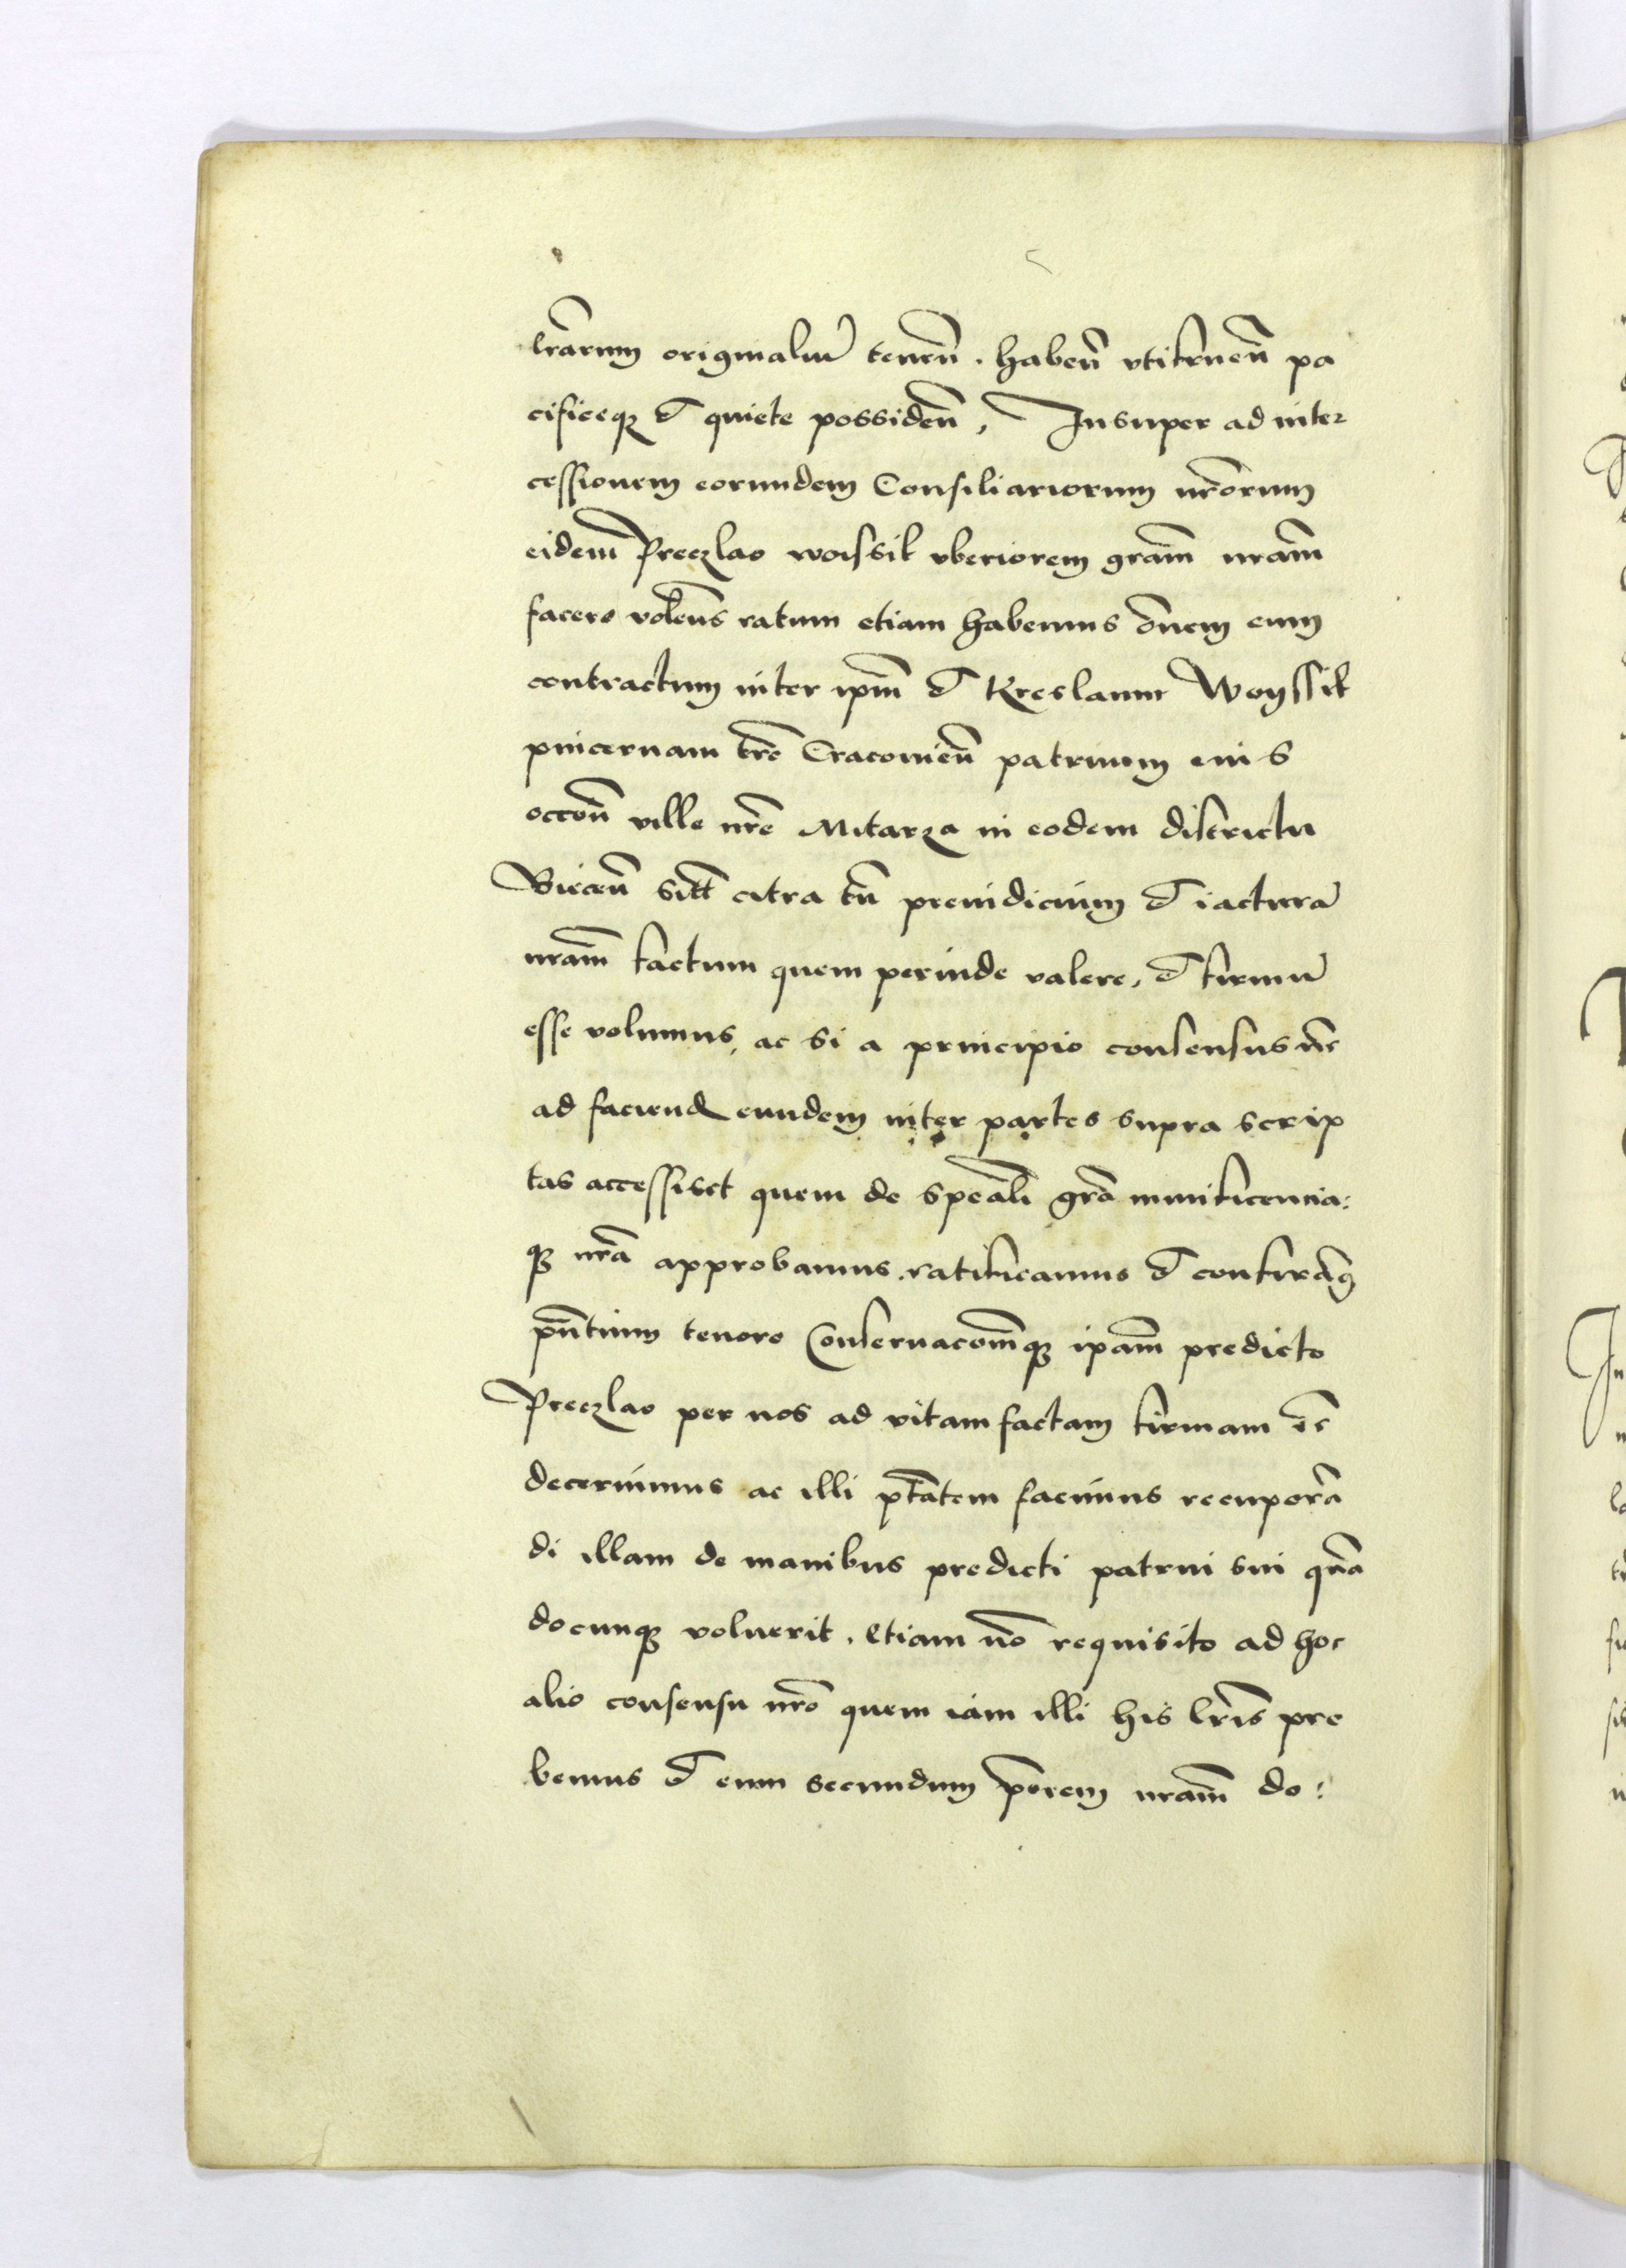 lrarum originaliũ tenen̄ . haben̄ vtifruen̄ pa
cificeq; et quiete possiden̄, Insuper ad inter
cessionem eorundem Consiliariorum nrōrum
eidem Preczlao woissik vberiorem grām nrām
facere volen̄s ratum etiam habemus om̄nem eum
contractum inter ipm̄ et Kreslaum Woyssik
pincernam trē Cracovien̄ patruum eius
occōn̄ ville nrē Mitarza in eodem districtu
Biecen̄ sitē citra tn̄ preiudicium et iacturā
nrām factum quem perinde valere, et firmũ
esse volumus, ac si a principio consensus nr̄
ad faciend eundem inter partes supra scrip
tas accessisset quem de speāli grā munificencia:
q; nrā approbamus . ratificamus et confirām9
pn̄tium tenore Conservacōmq; ipam̄ predicto
Preczlao per nos ad vitam factam firmam ēē
decernimus ac illi ptātem facimus recuperā
di illam de manibus predicti patrui sui qnā
docunq; voluerit . Etiam nō requisito ad hoc
alio consensu nrō quem iam illi his lrīs pre
bemus et eum secundum prōrem nrām do: